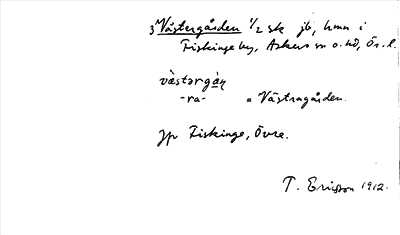 3 Västergården 1/2 sk jb, hmn i
Fiskinge by, Askers sn o. hd, Ör. l.
västərgàṇ
-ra- = Västragården.
Jfr Fiskinge, Övre.
T. Ericsson 1912.